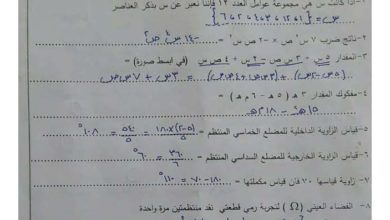 ١-إذا كانت س هي مجموعة عوامل العدد ١٢ فإننا نعبر عن س بذكر العناصر
س = { ١ ، ١٢ ، ٣ ، ٤ ، ٢ ، ٦ }
٢-ناتج ضرب ٧ س٢ ص × -٢ ص س٢ = -١٤ س٤ ص٢
٣-المقدار ٥ س + ٣ ص - ٢ س + ٤ ص = (في ابسط صورة)
(٥س-٢س) + (٣ص+٤ص) = ٣س + ٧ص
٤-مفكوك المقدار ٣ هـ ( ٥ - ٦ م ) =
١٥هـ - ١٨هـم
٥-قياس الزاوية الداخلية للمضلع الخماسي المنتظم = (٥-٢)×١٨٠ / ٥ = ٥٤٠ / ٥ = ١٠٨°
٦-قياس الزاوية الخارجية للمضلع السداسي المنتظم = ٣٦٠ / ٦ = ٦٠°
٧- زاوية قياسها ٧٠ فان قياس مكملتها = ١٨٠-٧٠ = ١١٠°
٨- الفضاء العيني (Ω) لتجربة رمي قطعتي نقد منتظمتين مرة واحدة